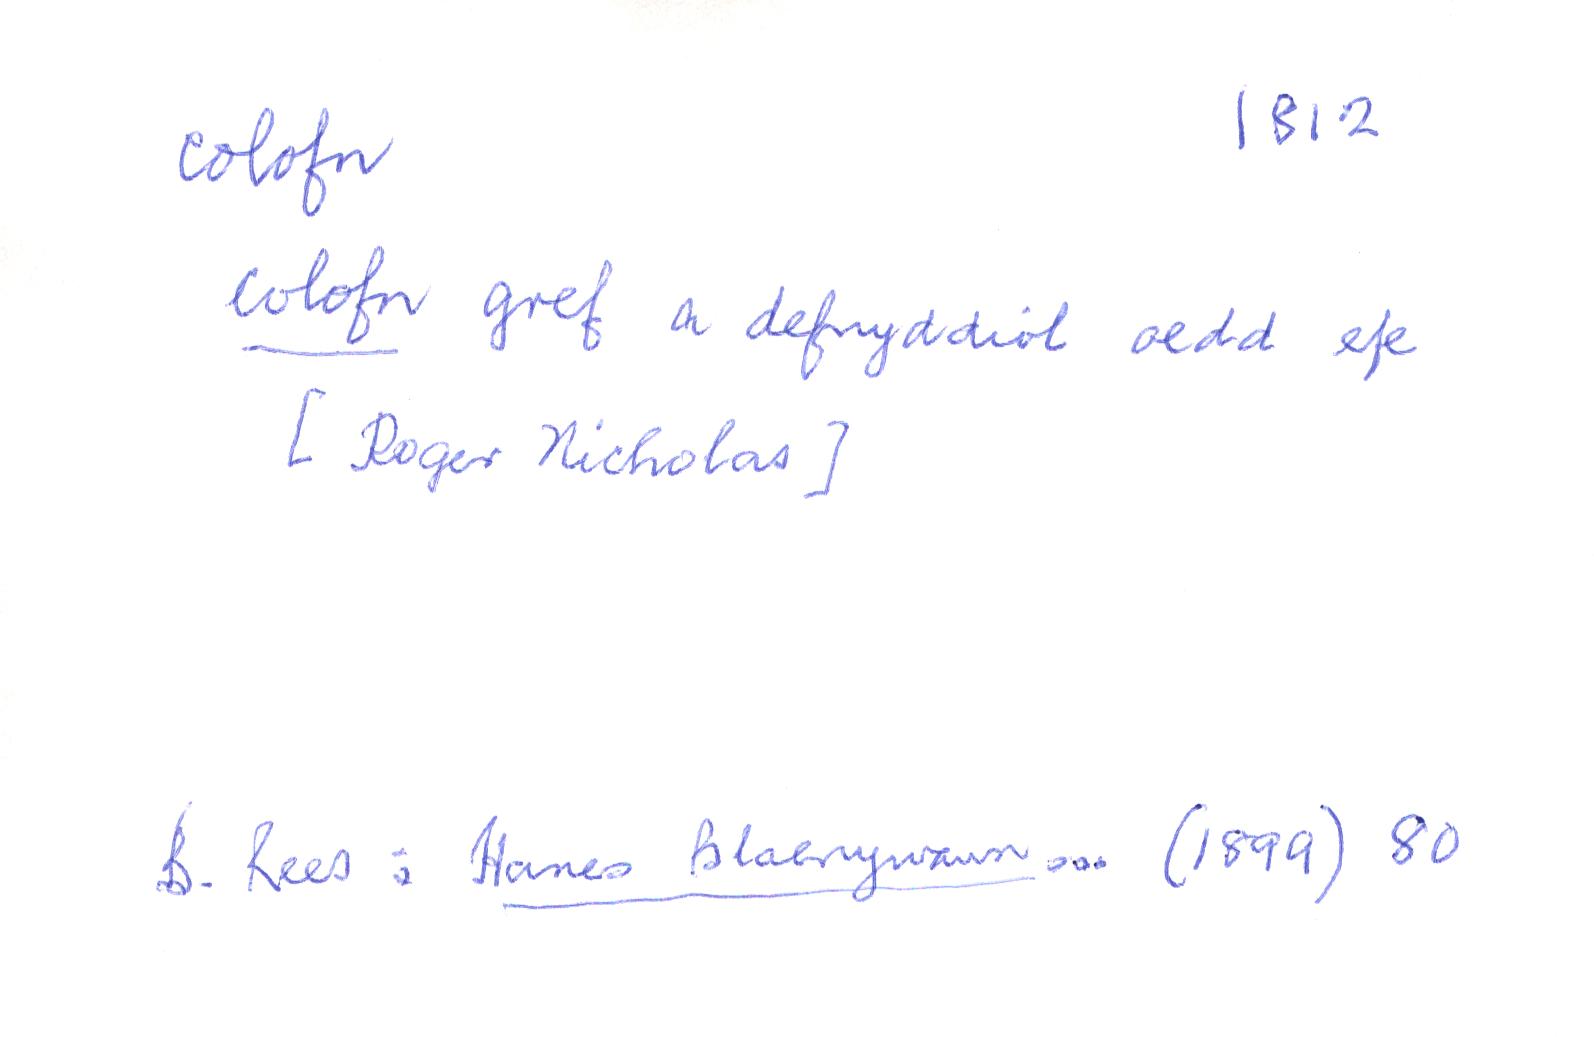 colofn 1812
colofn gref a defnyddiol oedd efe
[Roger Nicholas]
B. Rees : Hanes Blaenywaun ... (1899) 80